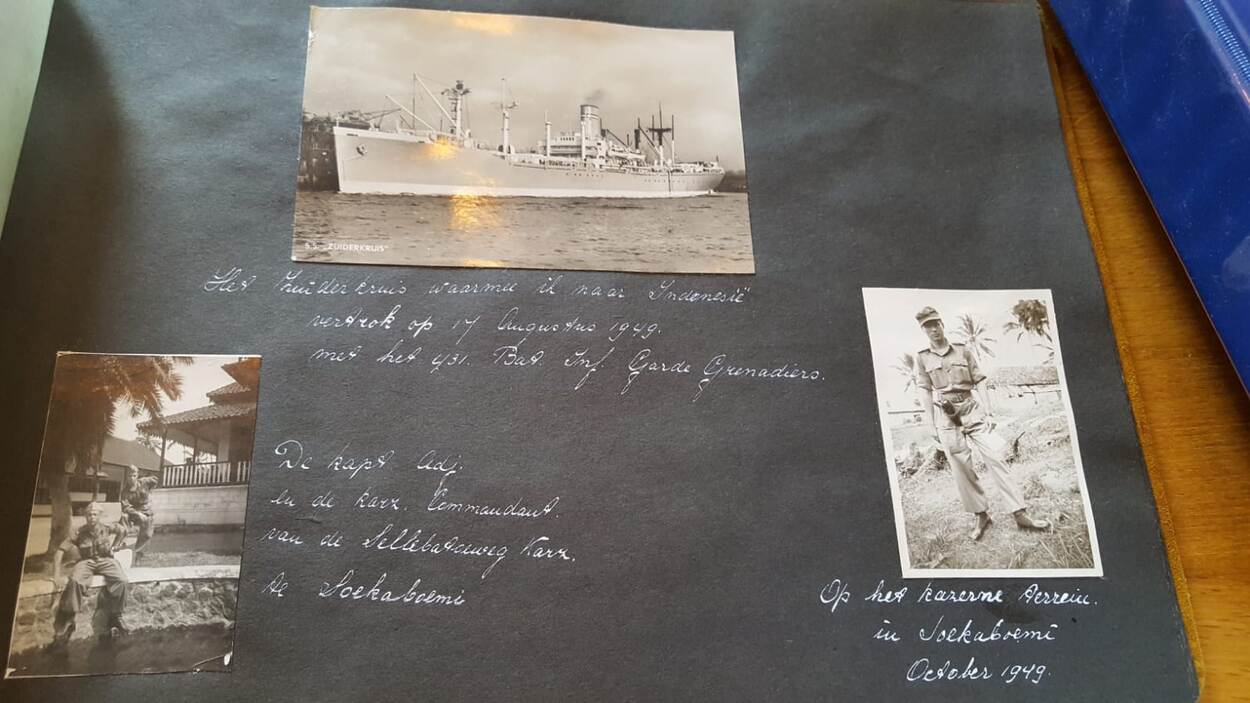 S.S. „ZUIDERKRUIS"
Het Zuiderkruis waarmee ik naar Indonesië
vertrok op 17 Augustus 1949.
met het 431. Bat. Inf. Garde Grenadiers.
De kapt Adj.
en de karz. Commandant.
van de Sellebatoeweg Karz.
te Soekaboemi
Op het kazerne terrein.
in Soekaboemi
October 1949.